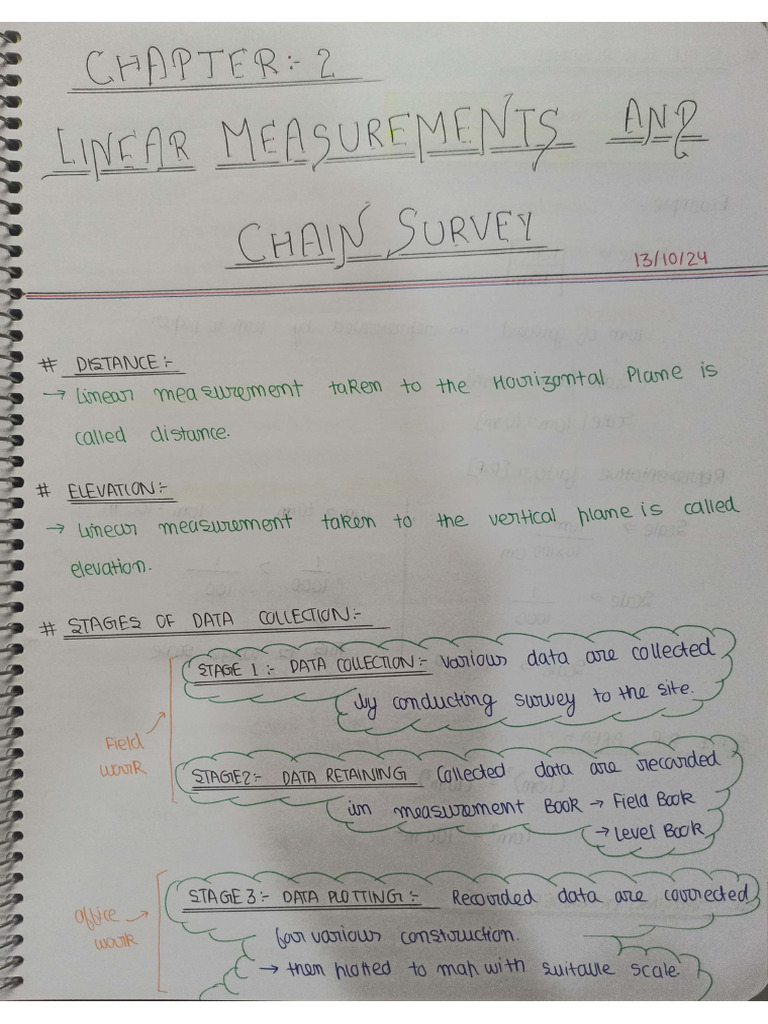 CHAPTER:- 2
LINEAR MEASUREMENTS AND
CHAIN SURVEY
13/10/24
# DISTANCE:-
→ Linear measurement taken to the Hourizontal Plane is
called distance.
# ELEVATION:-
→ Linear measurement taken to the vertical plane is called
elevation.
# STAGES OF DATA COLLECTION:-
STAGE 1:- DATA COLLECTION:- Various data are collected
by conducting survey to the site.
Field
work
STAGE2:- DATA RETAINING Collected data are recorded
in measurement Book → Field Book
→ Level Book
STAGE 3:- DATA PLOTTING:- Recorded data are corrected
office
work
for various construction.
→ then plotted to map with suitable scale.